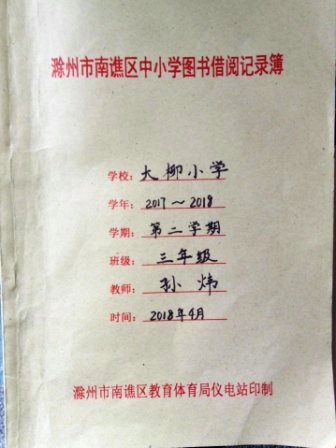 滁州市南谯区中小学图书借阅记录簿
学校：大柳小学
学年：2017～2018
学期：第二学期
班级：三年级
教师：孙炜
时间：2018年4月
滁州市南谯区教育体育局仪电站印制